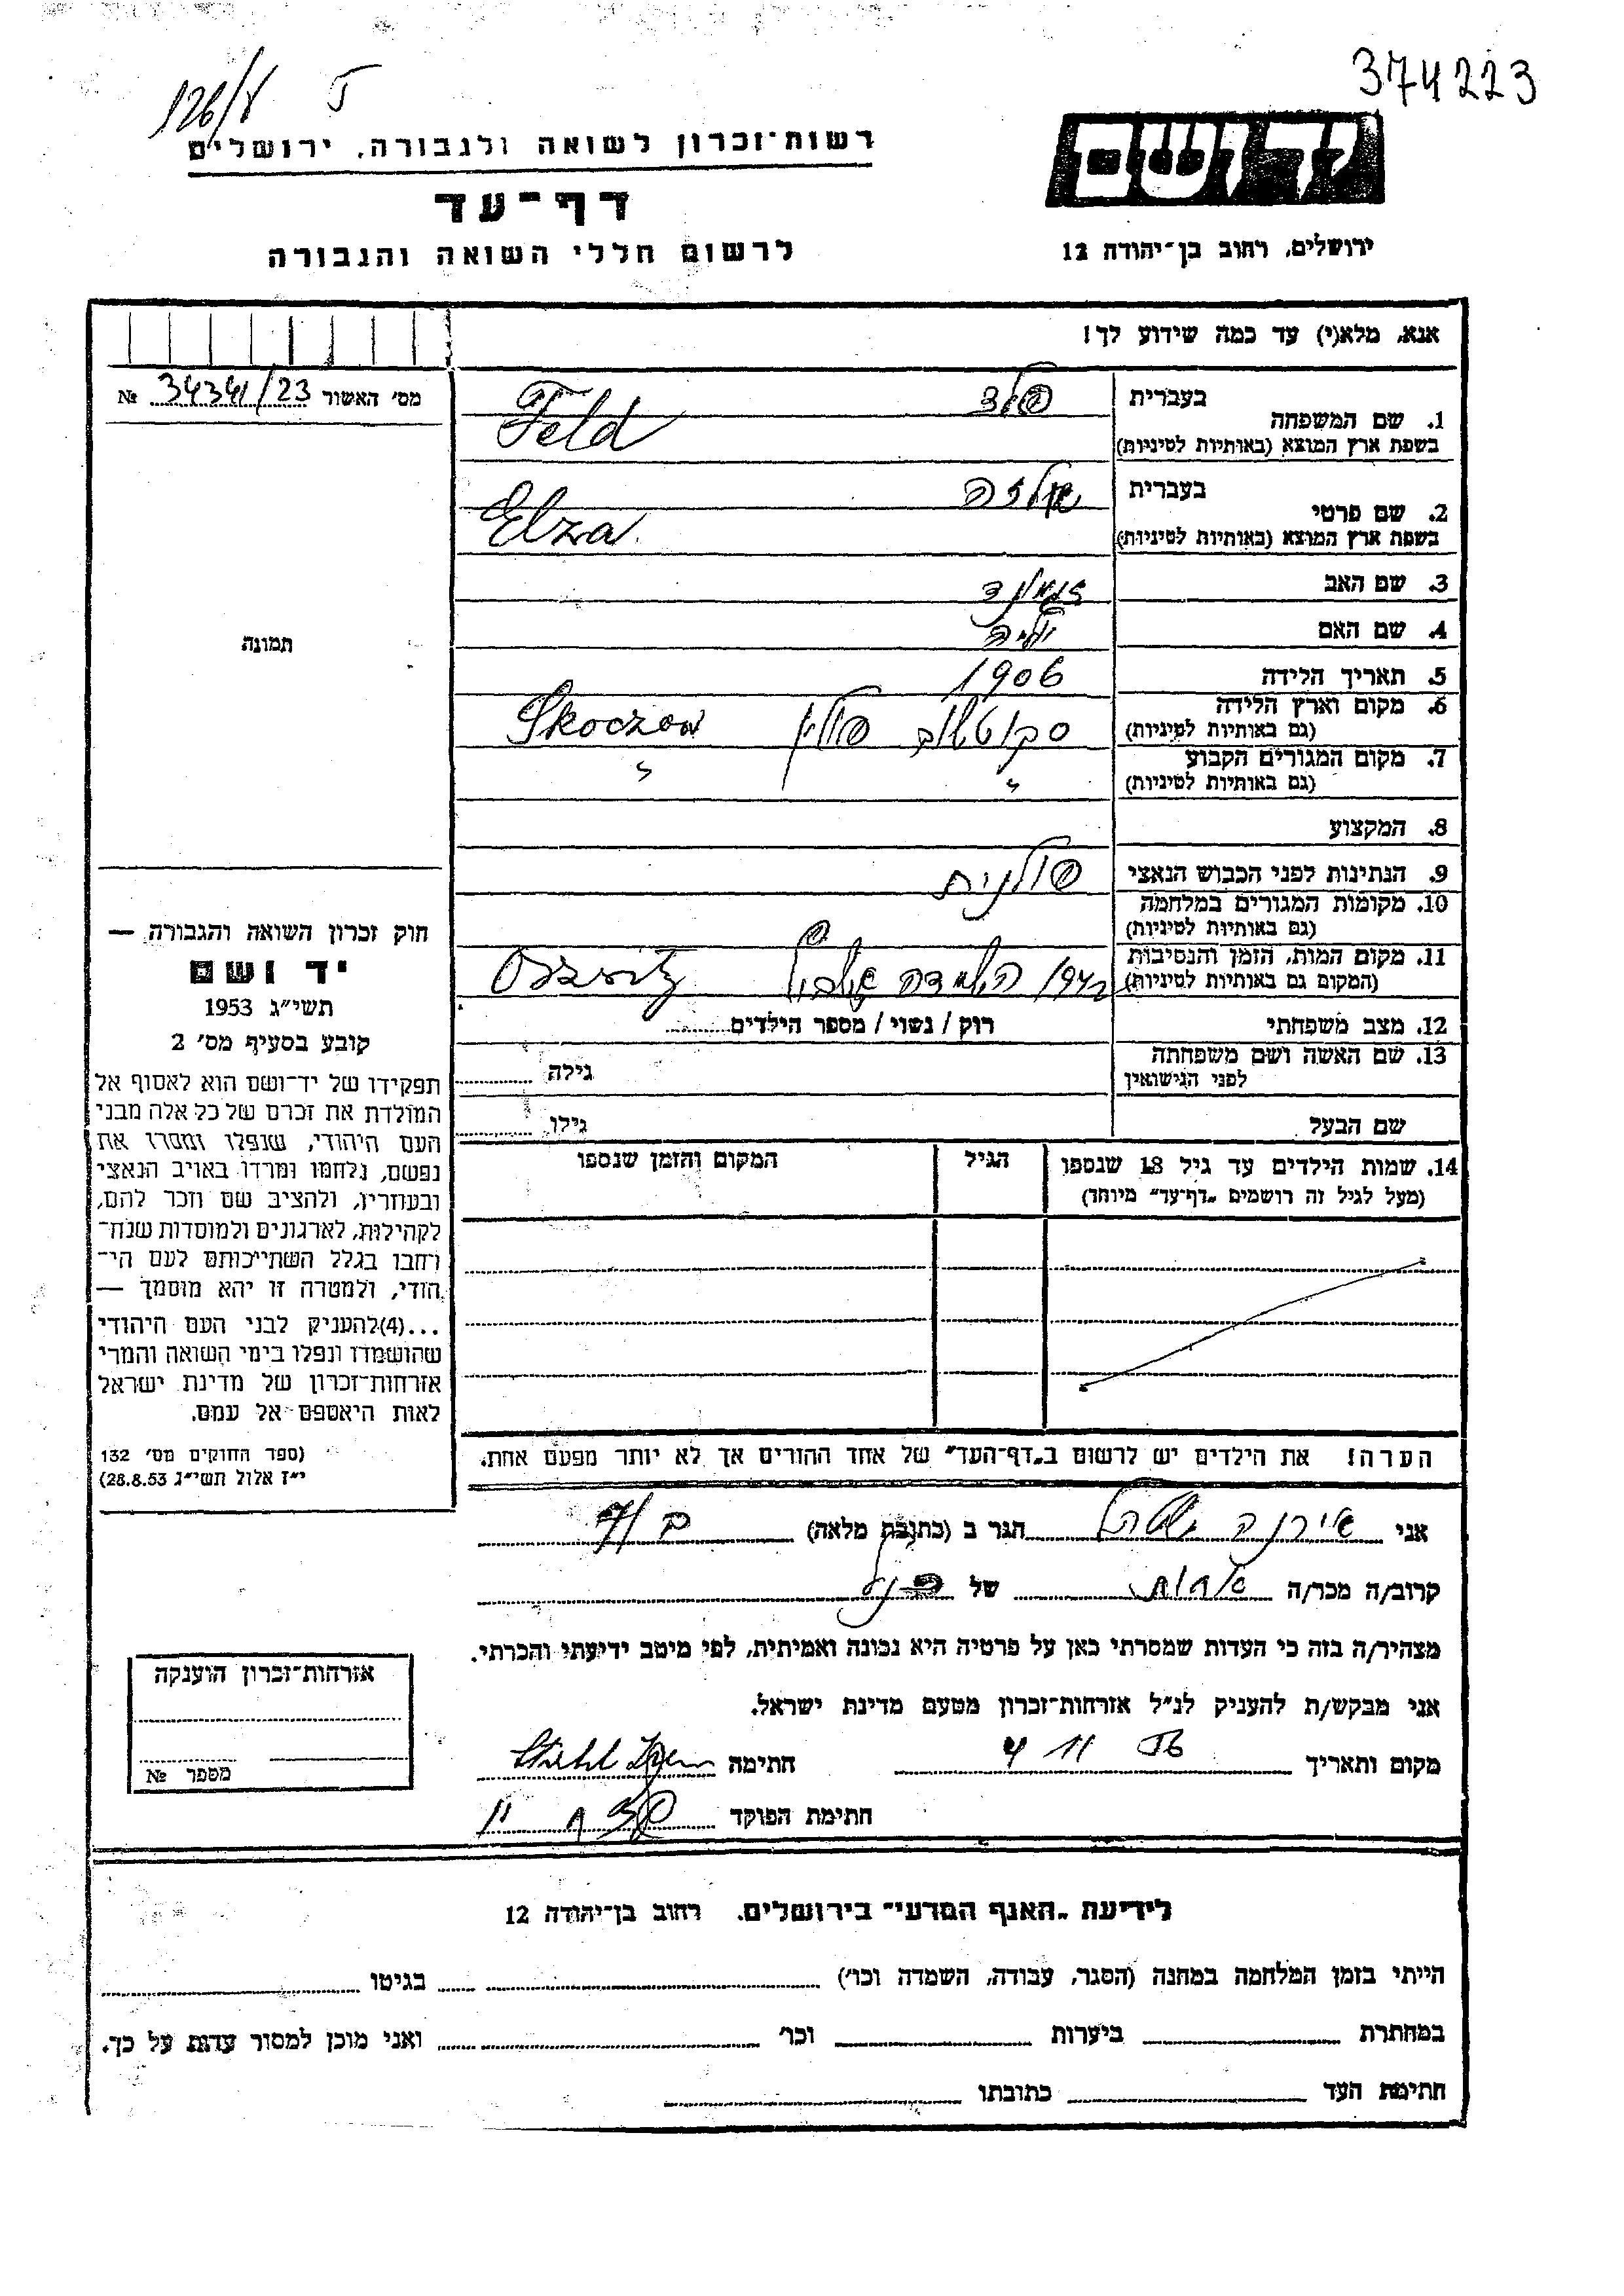 374223
126/ע
יד ושם
ירושלים, רחוב בן־יהודה 12
רשות־זכרון לשואה ולגבורה, ירושלים
דף־עד
לרשום חללי השואה והגבורה
אנא, מלא(י) עד כמה שידוע לך!
מס׳ האשור № 34341/23
תמונה
1. שם המשפחה בעברית פלד
בשפת ארץ המוצא (באותיות לטיניות) Feld
2. שם פרטי בעברית אלזה
בשפת ארץ המוצא (באותיות לטיניות) Elza
3. שם האב
4. שם האם
5. תאריך הלידה 1906
6. מקום וארץ הלידה (גם באותיות לטיניות) סקוטשוב פולין Skoczow
7. מקום המגורים הקבוע (גם באותיות לטיניות) " "
8. המקצוע
9. הנתינות לפני הכבוש הנאצי פולנית
10. מקומות המגורים במלחמה (גם באותיות לטיניות)
11. מקום המות, הזמן והנסיבות (המקום גם באותיות לטיניות) השמדה
12. מצב משפחתי רוק / נשוי / מספר הילדים
13. שם האשה ושם משפחתה לפני הנישואין גילה
שם הבעל גילו
14. שמות הילדים עד גיל 18 שנספו (מעל לגיל זה רושמים „דף־עד” מיוחד) הגיל המקום והזמן שנספו
הערה! את הילדים יש לרשום ב„דף־העד” של אחד ההורים אך לא יותר מפעם אחת.
חוק זכרון השואה והגבורה —
יד ושם
תשי״ג 1953
קובע בסעיף מס׳ 2
תפקידו של יד־ושם הוא לאסוף אל
המולדת את זכרם של כל אלה מבני
העם היהודי, שנפלו ומסרו את
נפשם, נלחמו ומרדו באויב הנאצי
ובעוזריו, ולהציב שם וזכר להם,
לקהילות, לארגונים ולמוסדות שנח־
רבו בגלל השתייכותם לעם הי־
הודי, ולמטרה זו יהא מוסמך —
...(4)להעניק לבני העם היהודי
שהושמדו ונפלו בימי השואה והמרי
אזרחות־זכרון של מדינת ישראל
לאות היאספם אל עמם.
(ספר החוקים מס׳ 132
י״ז אלול תשי״ג 28.8.53)
אני אירנה הגר ב (כתובת מלאה)
קרוב/ה מכר/ה אחות של
מצהיר/ה בזה כי העדות שמסרתי כאן על פרטיה היא נכונה ואמיתית, לפי מיטב ידיעתי והכרתי.
אני מבקש/ת להעניק לנ״ל אזרחות־זכרון מטעם מדינת ישראל.
מקום ותאריך 4 11 56 חתימה
חתימת הפוקד
אזרחות־זכרון הוענקה
מספר №
לידיעת „האגף המדעי” בירושלים, רחוב בן־יהודה 12
הייתי בזמן המלחמה במחנה (הסגר, עבודה, השמדה וכו׳) בגיטו
במחתרת ביערות וכו׳ ואני מוכן למסור עדות על כך.
חתימת העד כתובתו